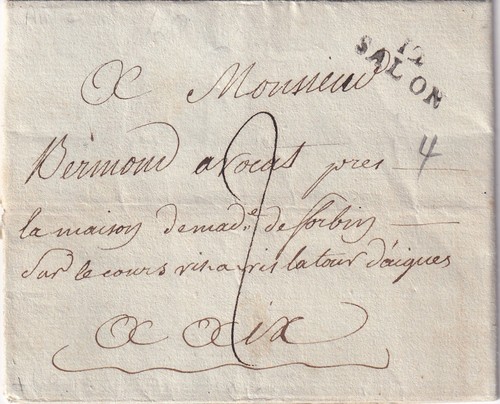 12
SALON
A Monsieur
Bermond avocat pres
4
la maison de mad.e de Sorbin
Sur le cours vis a vis la tour d'aigues
A Aix
2